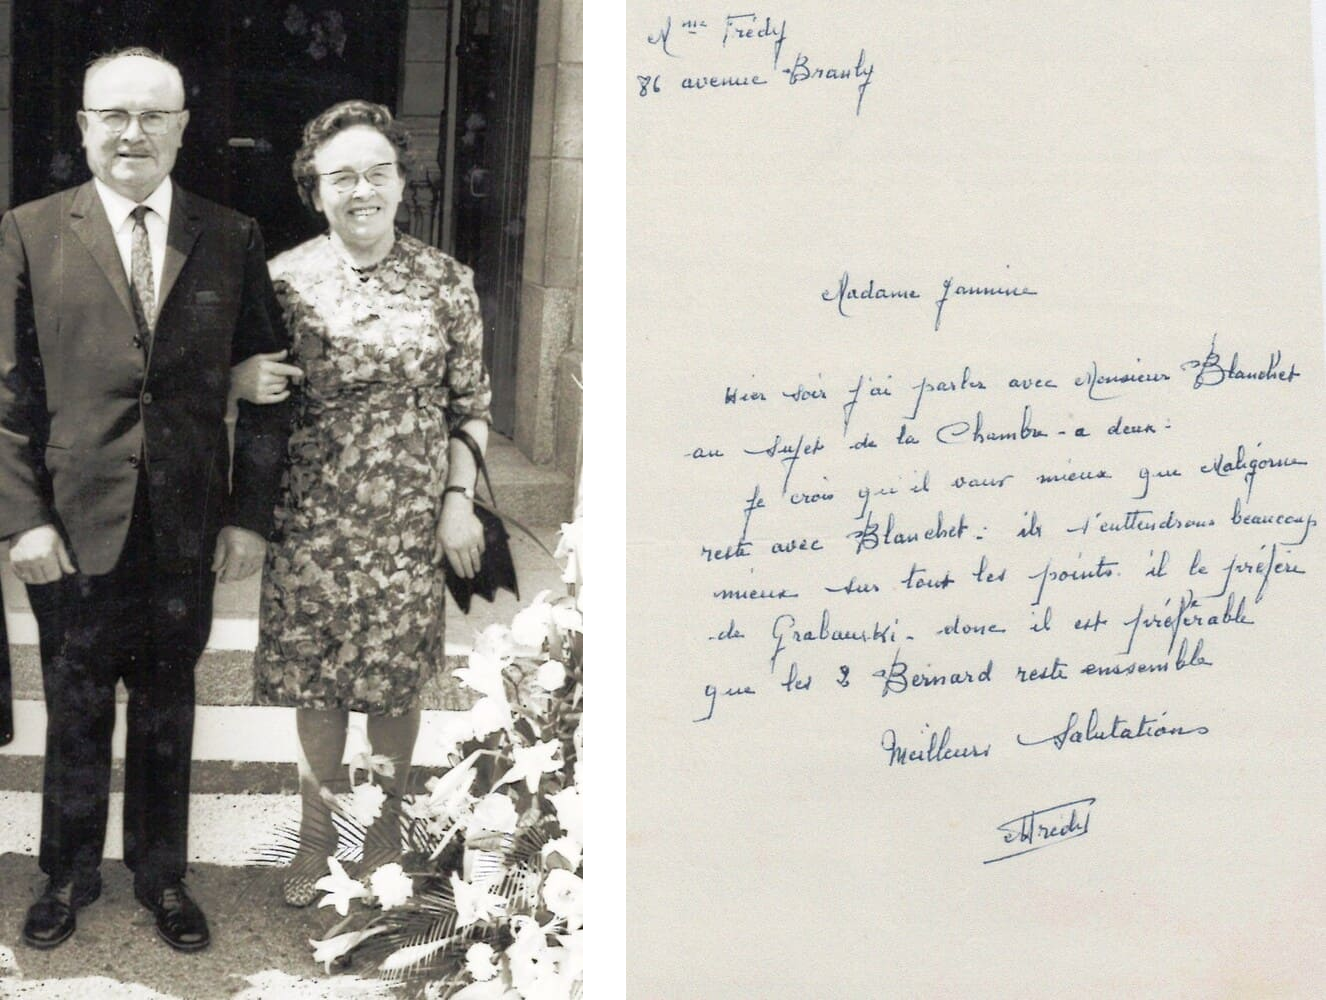 Mme Frédy
86 avenue Branly
Madame Jannine
Hier soir j'ai parler avec Monsieur Blanchet
au sujet de la Chambre - a deux :
Je crois qu'il vaux mieux que Maligorne
reste avec Blanchet : ils s'enttendrons beaucoup
mieux sur tout les points. il le préfère
de Grabauski - donc il est préférable
que les 2 Bernard reste enssemble
Meilleurs Salutations
MFrédy